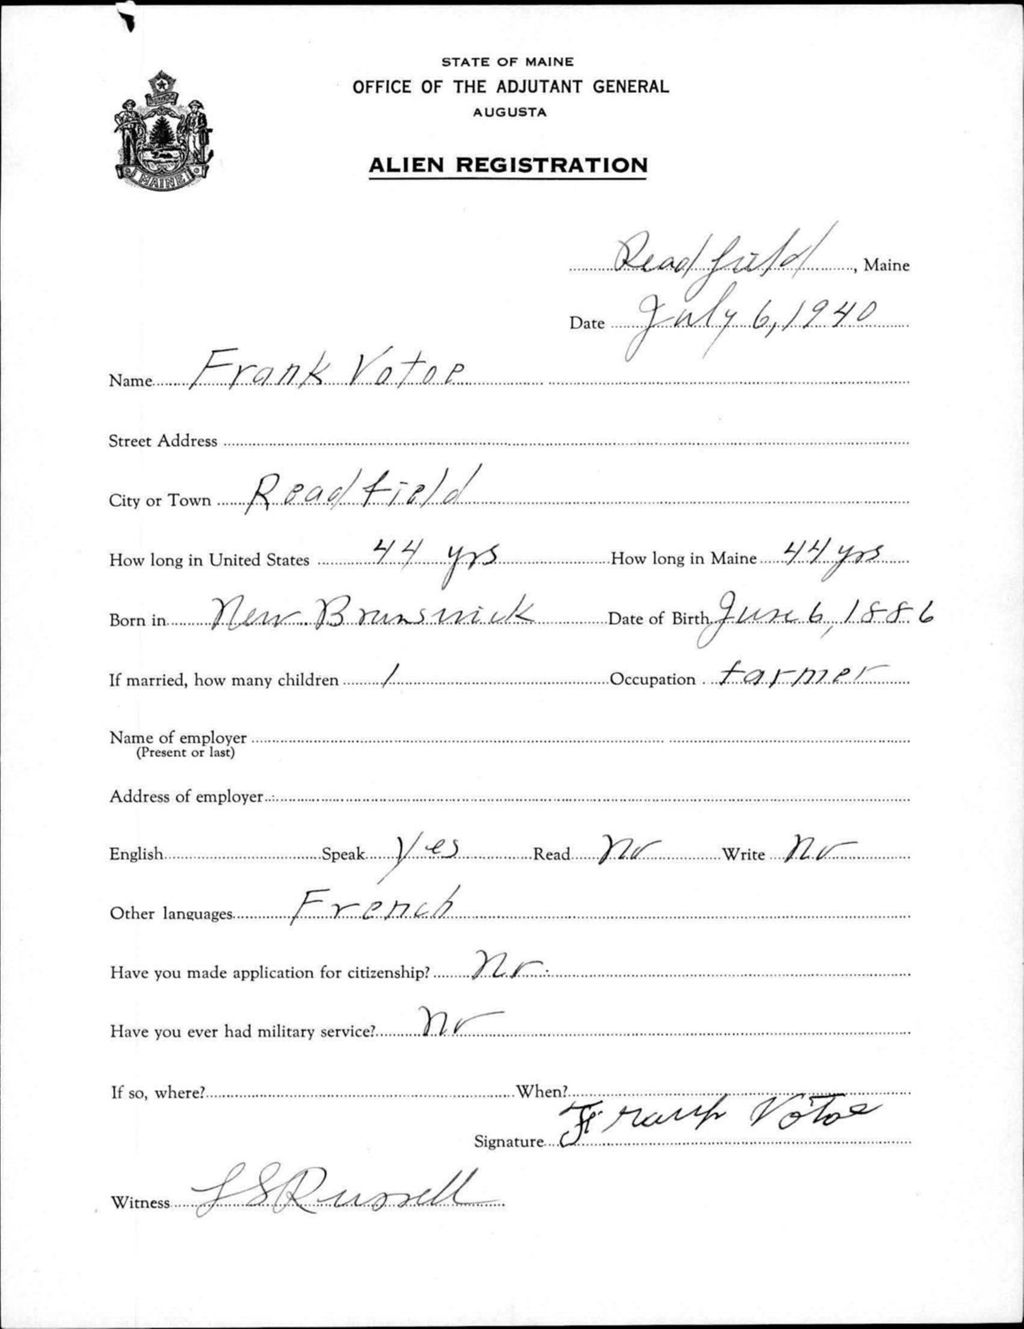 STATE OF MAINE
OFFICE OF THE ADJUTANT GENERAL
AUGUSTA
MAINE
ALIEN REGISTRATION
Readfield, Maine
Date July 6, 1940
Name Frank Votoe
Street Address
City or Town Readfield
How long in United States 44 yrs How long in Maine 44 yrs
Born in New Brunswick Date of Birth June 6, 1886
If married, how many children 1 Occupation farmer
Name of employer
(Present or last)
Address of employer
English Speak Yes Read No Write No
Other languages French
Have you made application for citizenship? No.
Have you ever had military service? No
If so, where? When?
Signature Frank Votoe
Witness L S Russell